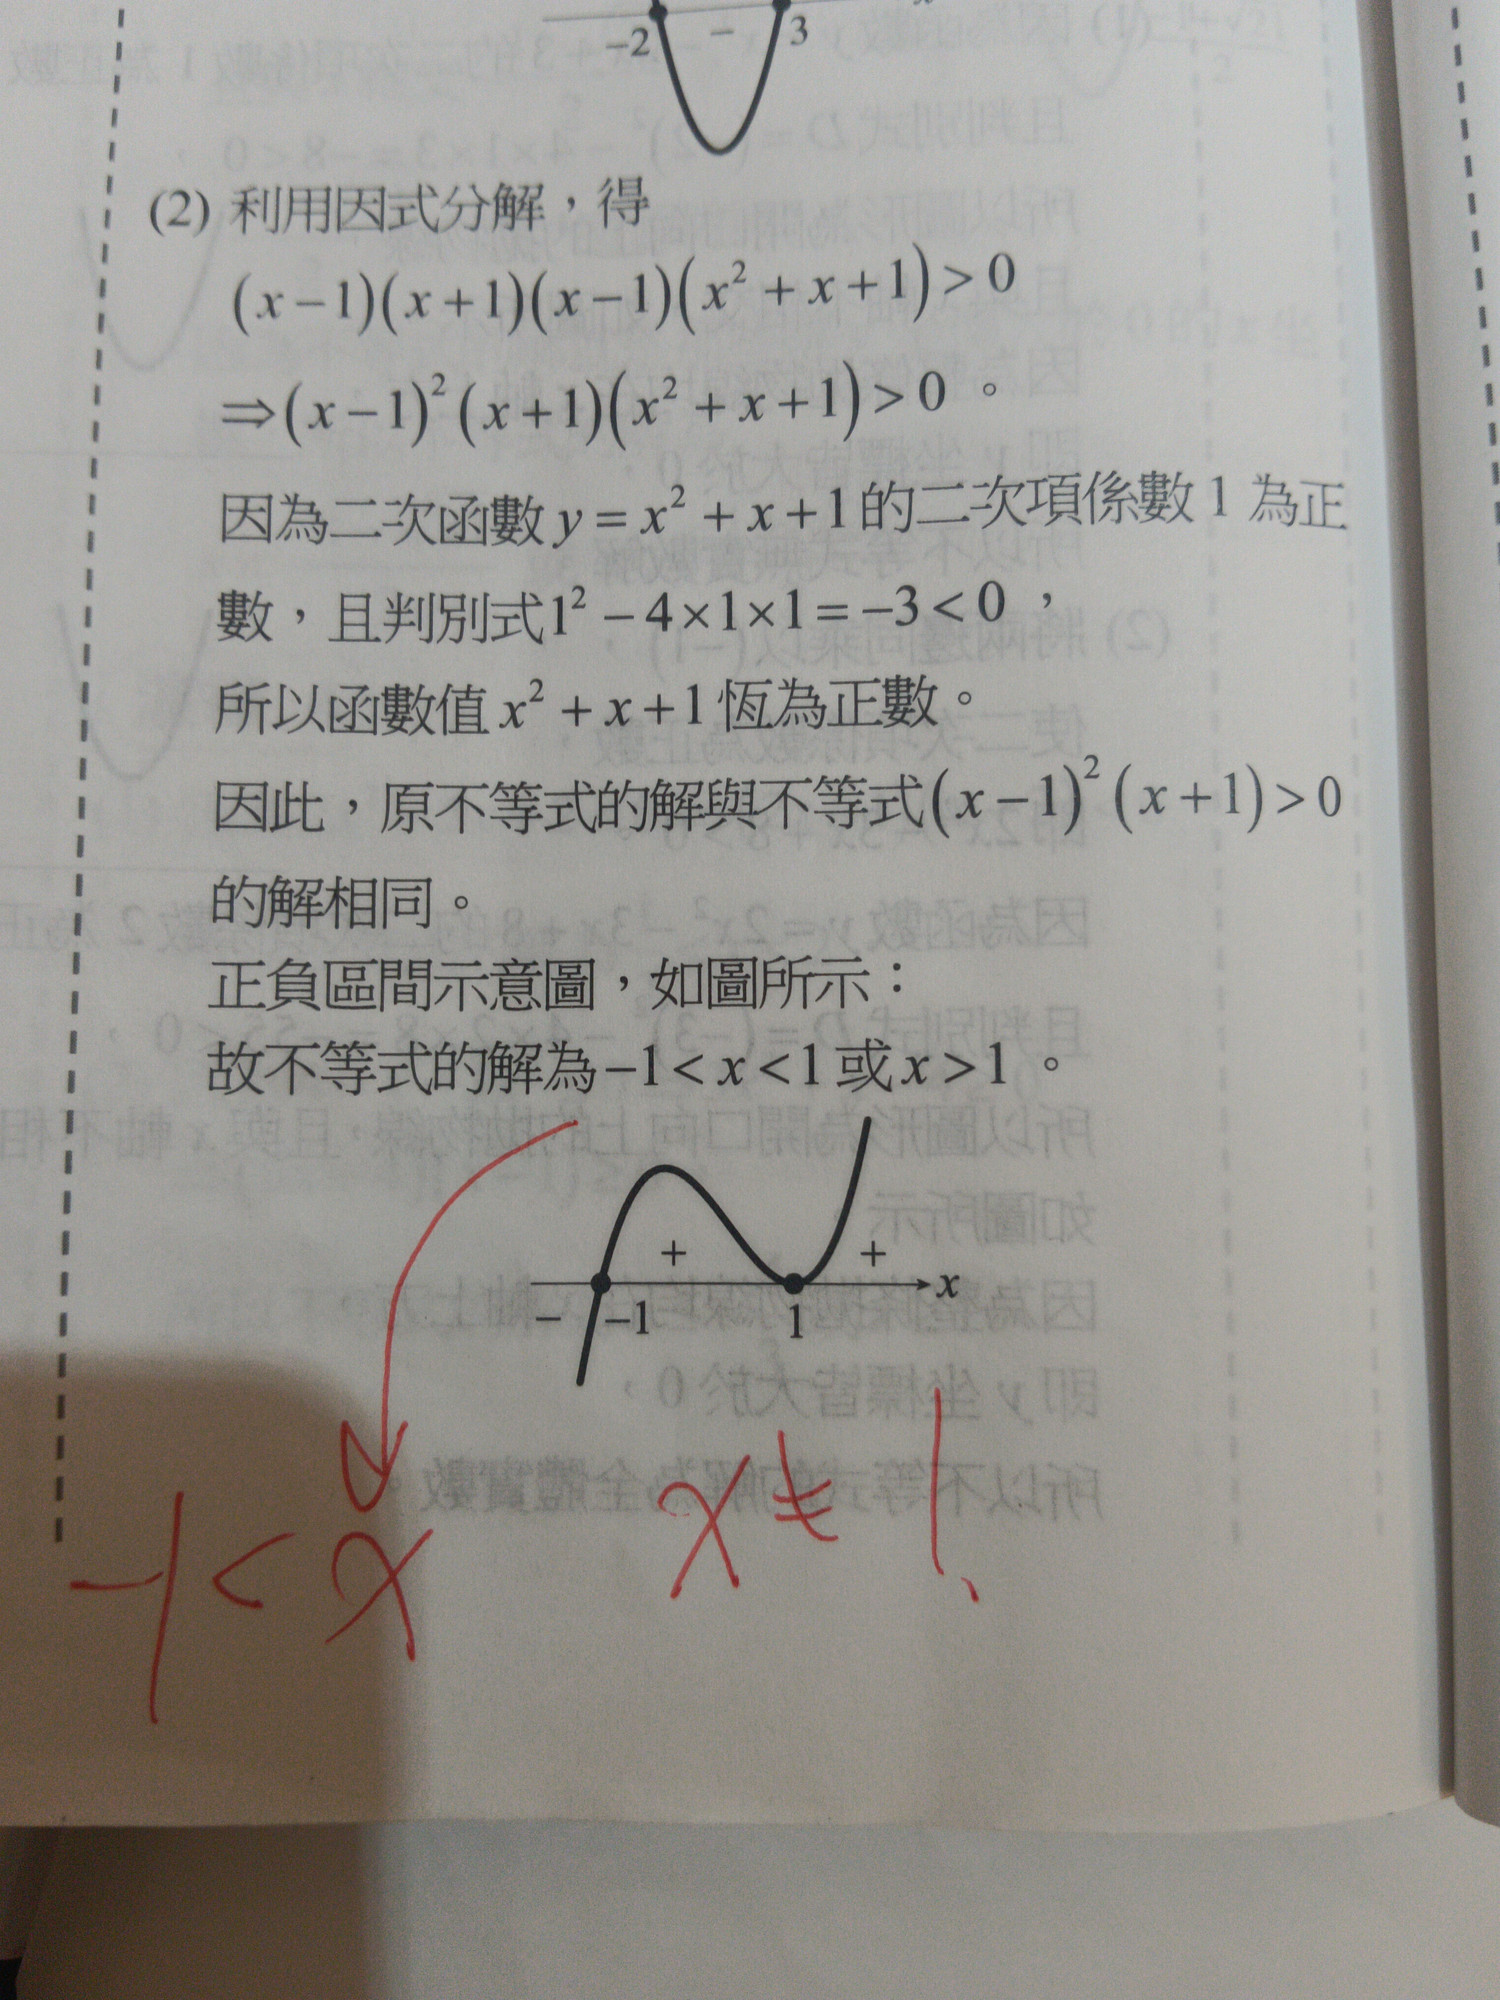 -2 - 3
(2) 利用因式分解，得
(x-1)(x+1)(x-1)(x²+x+1)>0
⇒(x-1)²(x+1)(x²+x+1)>0。
因為二次函數y=x²+x+1的二次項係數1為正
數，且判別式1²-4×1×1=-3<0，
所以函數值x²+x+1恆為正數。
因此，原不等式的解與不等式(x-1)²(x+1)>0
的解相同。
正負區間示意圖，如圖所示：
故不等式的解為-1<x<1或x>1。
+ +
x
- -1 1
-1<x x≠1.